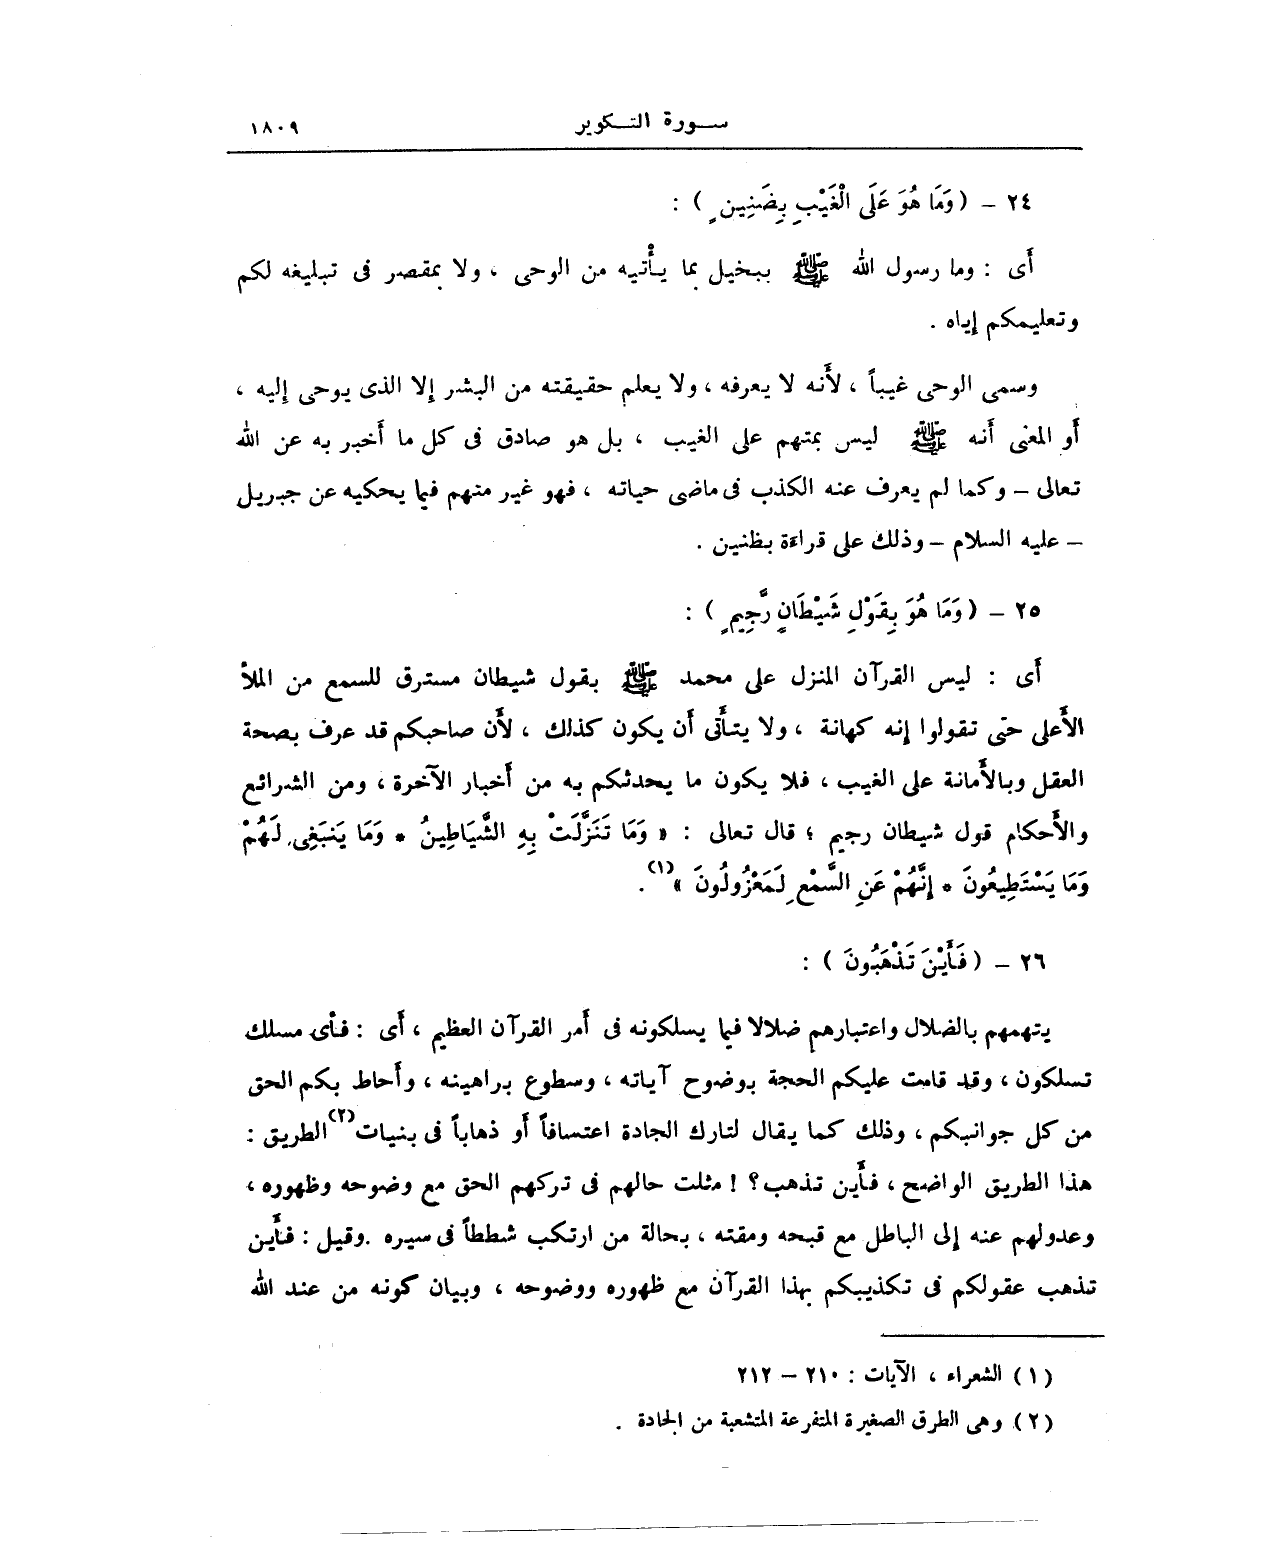 سورة التكوير ١٨٠٩
٢٤ – ( وَمَا هُوَ عَلَى الْغَيْبِ بِضَنِينٍ ) :
أَى : وما رسول الله ﷺ ببخيل بما يأْتيه من الوحى ، ولا بمقصر فى تبليغه لكم
وتعليمكم إياه .
وسمى الوحى غيباً ، لأَنه لا يعرفه ، ولا يعلم حقيقته من البشر إلا الذى يوحى إليه ،
أَو المعنى أَنه ﷺ ليس بمتهم على الغيب ، بل هو صادق فى كل ما أَخبر به عن الله
تعالى – وكما لم يعرف عنه الكذب فى ماضى حياته ، فهو غير متهم فيما يحكيه عن جبريل
– عليه السلام – وذلك على قراءة بظنين .
٢٥ – ( وَمَا هُوَ بِقَوْلِ شَيْطَانٍ رَّجِيمٍ ) :
أَى : ليس القرآن المنزل على محمد ﷺ بقول شيطان مسترق للسمع من الملأ
الأَعلى حتى تقولوا إنه كهانة ، ولا يتأَتى أَن يكون كذلك ، لأَن صاحبكم قد عرف بصحة
العقل وبالأَمانة على الغيب ، فلا يكون ما يحدثكم به من أَخبار الآخرة ، ومن الشرائع
والأَحكام قول شيطان رجيم ؛ قال تعالى : « وَمَا تَنَزَّلَتْ بِهِ الشَّيَاطِينُ * وَمَا يَنبَغِى لَهُمْ
وَمَا يَسْتَطِيعُونَ * إِنَّهُمْ عَنِ السَّمْعِ لَمَعْزُولُونَ »(١) .
٢٦ – ( فَأَيْنَ تَذْهَبُونَ ) :
يتهمهم بالضلال واعتبارهم ضلالا فيما يسلكونه فى أَمر القرآن العظيم ، أَى : فأَى مسلك
تسلكون ، وقد قامت عليكم الحجة بوضوح آياته ، وسطوع براهينه ، وأَحاط بكم الحق
من كل جوانبكم ، وذلك كما يقال لتارك الجادة اعتسافاً أَو ذهاباً فى بنيات(٢) الطريق :
هذا الطريق الواضح ، فأَين تذهب؟ ! مثلت حالهم فى تركهم الحق مع وضوحه وظهوره ،
وعدولهم عنه إلى الباطل مع قبحه ومقته ، بحالة من ارتكب شططاً فى سيره .وقيل : فأَين
تذهب عقولكم فى تكذيبكم بهذا القرآن مع ظهوره ووضوحه ، وبيان كونه من عند الله
(١) الشعراء ، الآيات : ٢١٠ – ٢١٢
(٢) وهى الطرق الصغيرة المتفرعة المتشعبة من الجادة .